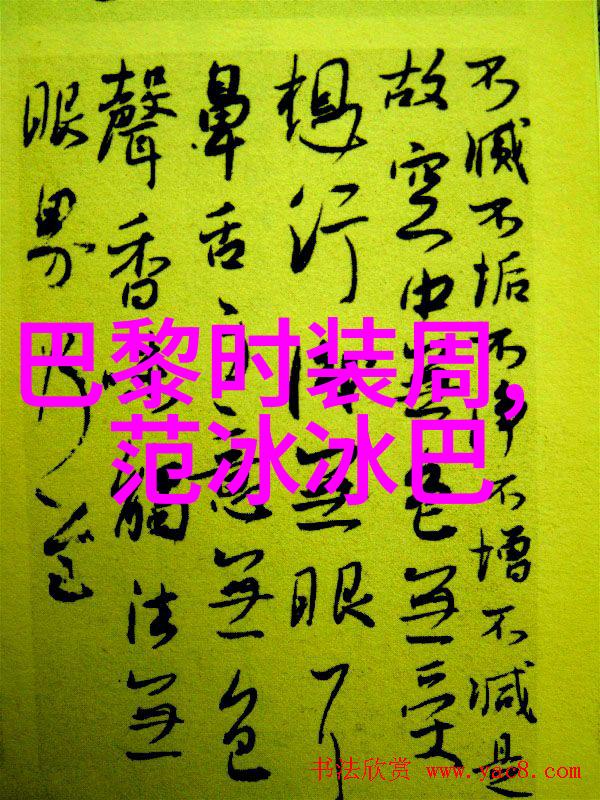 不滅不垢不净不增不減是
故空中無色無受
想行識無眼耳
鼻舌身意無色
聲香味觸法無
眼界乃至
巴黎时装周,
范冰冰巴
书法欣赏 www.yac8.com